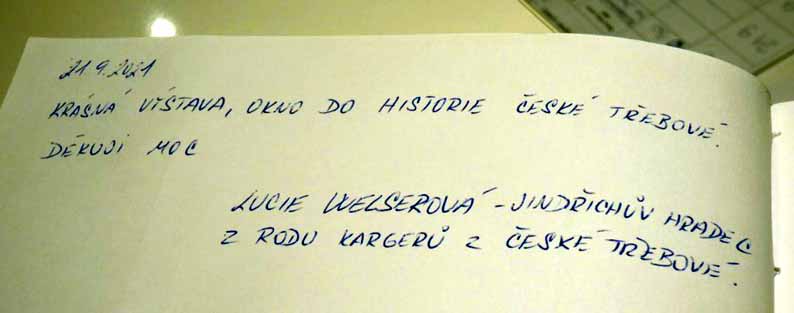 21.9.2021
KRÁSNÁ VÝSTAVA, OKNO DO HISTORIE ČESKÉ TŘEBOVÉ.
DĚKUJI MOC
LUCIE WELSEROVÁ - JINDŘICHŮV HRADEC
Z RODU KARGERŮ Z ČESKÉ TŘEBOVÉ.